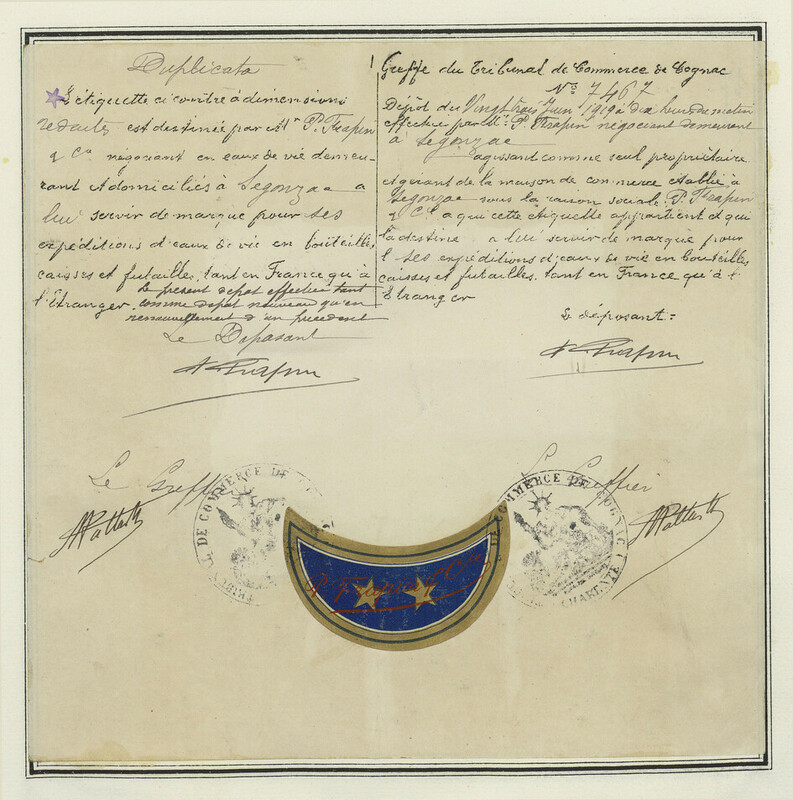 Duplicata
L'étiquette ci contre à dimensions
reduites est destinée par est Mr P. Frapin
& Cie négociant en eaux de vie demeu-
rant et domiciliés à Segonzac a
lui servir de marque pour ses
expéditions d'eaux de vie en bouteilles,
caisses et futailles, tant en France qu'à
l'étranger. le present depot effectué tant
comme depot nouveau qu'en
renouvellement d'un précédent
Le Déposant
P. Frapin
Greffe du Tribunal de Commerce de Cognac
No 7467
Dépôt du Vingt trois Juin 1919 à dix heures du matin
effectué par M. P. Frapin négociant demeurant
à Segonzac
agissant comme seul propriétaire
et gérant de la maison de commerce établie à
Segonzac sous la raison sociale P. Frapin
& Cie a qui cette étiquette appartient et qui
la destine a lui servir de marque pour
ses expéditions d'eaux de vie en bouteilles,
caisses et futailles, tant en France qu'à l'
Etranger
Le déposant :
P. Frapin
Le Greffier
Le Greffier
TRIBUNAL DE COMMERCE DE
COMMERCE DE COGNAC
CHARENTE
P. Frapin & Cie